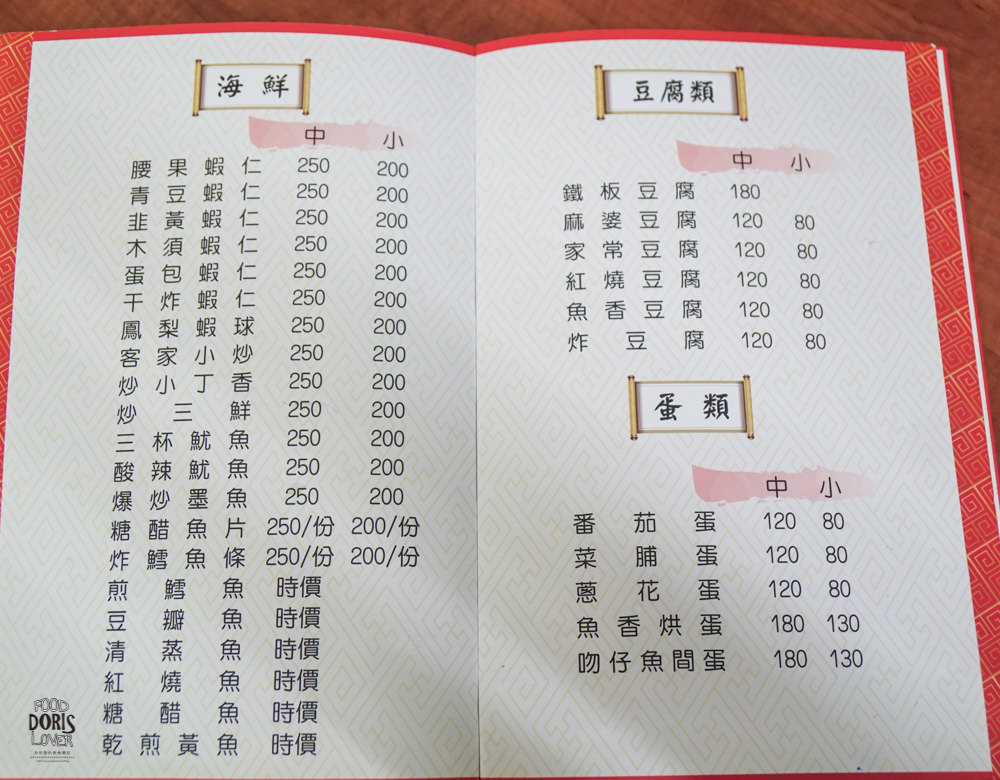 海鮮
中 小
腰果蝦仁 250 200
青豆蝦仁 250 200
韭黃蝦仁 250 200
木須蝦仁 250 200
蛋包蝦仁 250 200
干炸蝦仁 250 200
鳳梨蝦球 250 200
客家小炒 250 200
炒小丁香 250 200
炒三鮮 250 200
三杯魷魚 250 200
酸辣魷魚 250 200
爆炒墨魚 250 200
糖醋魚片 250/份 200/份
炸鱈魚條 250/份 200/份
煎鱈魚 時價
豆瓣魚 時價
清蒸魚 時價
紅燒魚 時價
糖醋魚 時價
乾煎黃魚 時價
FOOD
DORIS
LOVER
豆腐類
中 小
鐵板豆腐 180
麻婆豆腐 120 80
家常豆腐 120 80
紅燒豆腐 120 80
魚香豆腐 120 80
炸豆腐 120 80
蛋類
中 小
番茄蛋 120 80
菜脯蛋 120 80
蔥花蛋 120 80
魚香烘蛋 180 130
吻仔魚間蛋 180 130